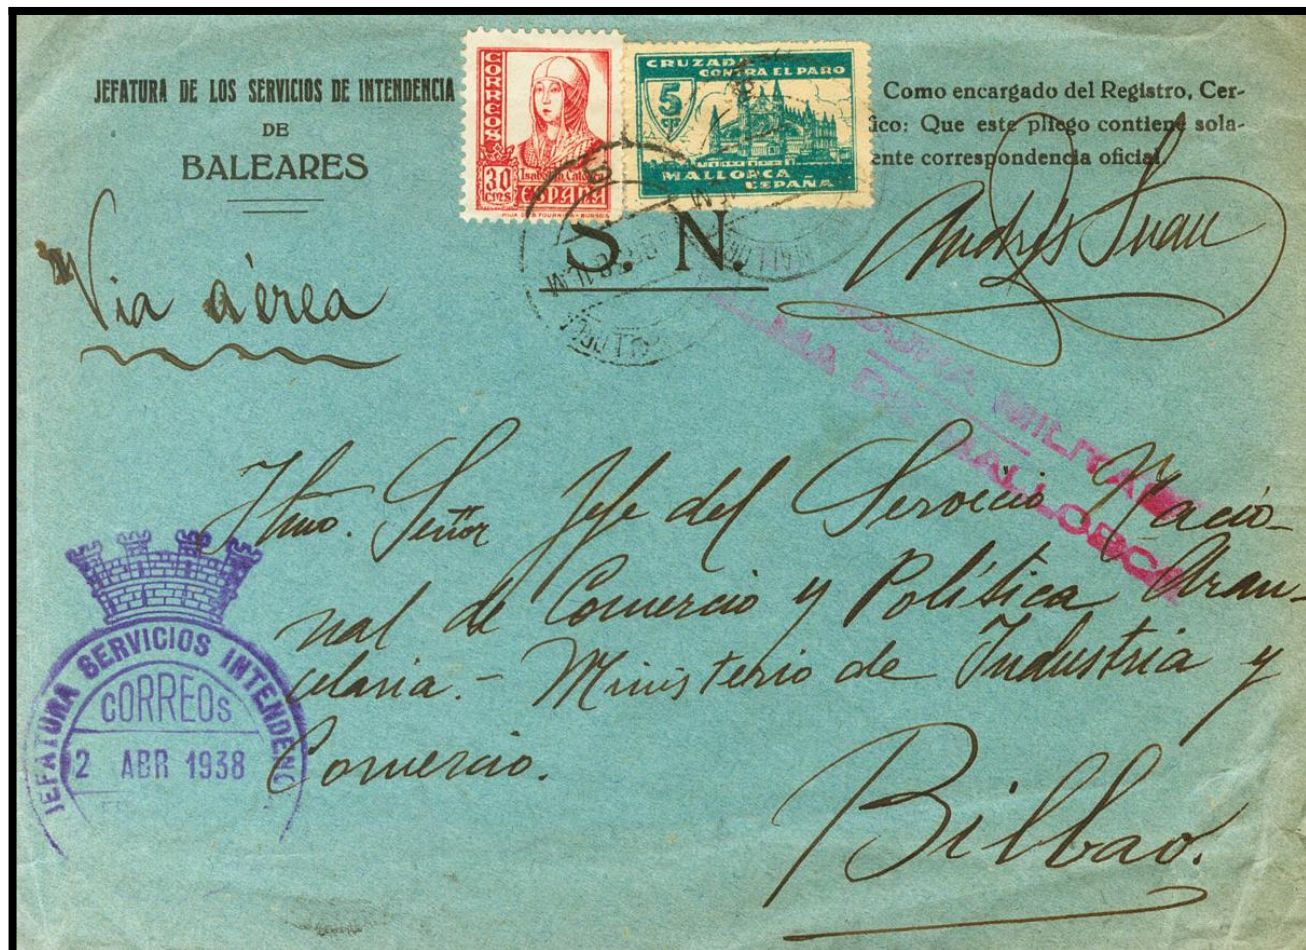 JEFATURA DE LOS SERVICIOS DE INTENDENCIA
DE
BALEARES
CORREOS
30
CTMS
Isabel la Católica
ESPAÑA
HIJA DE B. FOURNIER - BURGOS
CRUZADA
CONTRA EL PARO
5
cts
MALLORCA
ESPAÑA
Como encargado del Registro, Cer-
ico: Que este pliego contiene sola-
ente correspondencia oficial.
Andrés Juan
S. N.
Via aérea
MILITAR
PALMA DE MALLORCA
Iltmo. Señor Jefe del Servicio Nacio-
nal de Comercio y Política Aran-
celaria.- Ministerio de Industria y
Comercio.
Bilbao.
JEFATURA SERVICIOS INTENDENC
CORREOS
2 ABR 1938